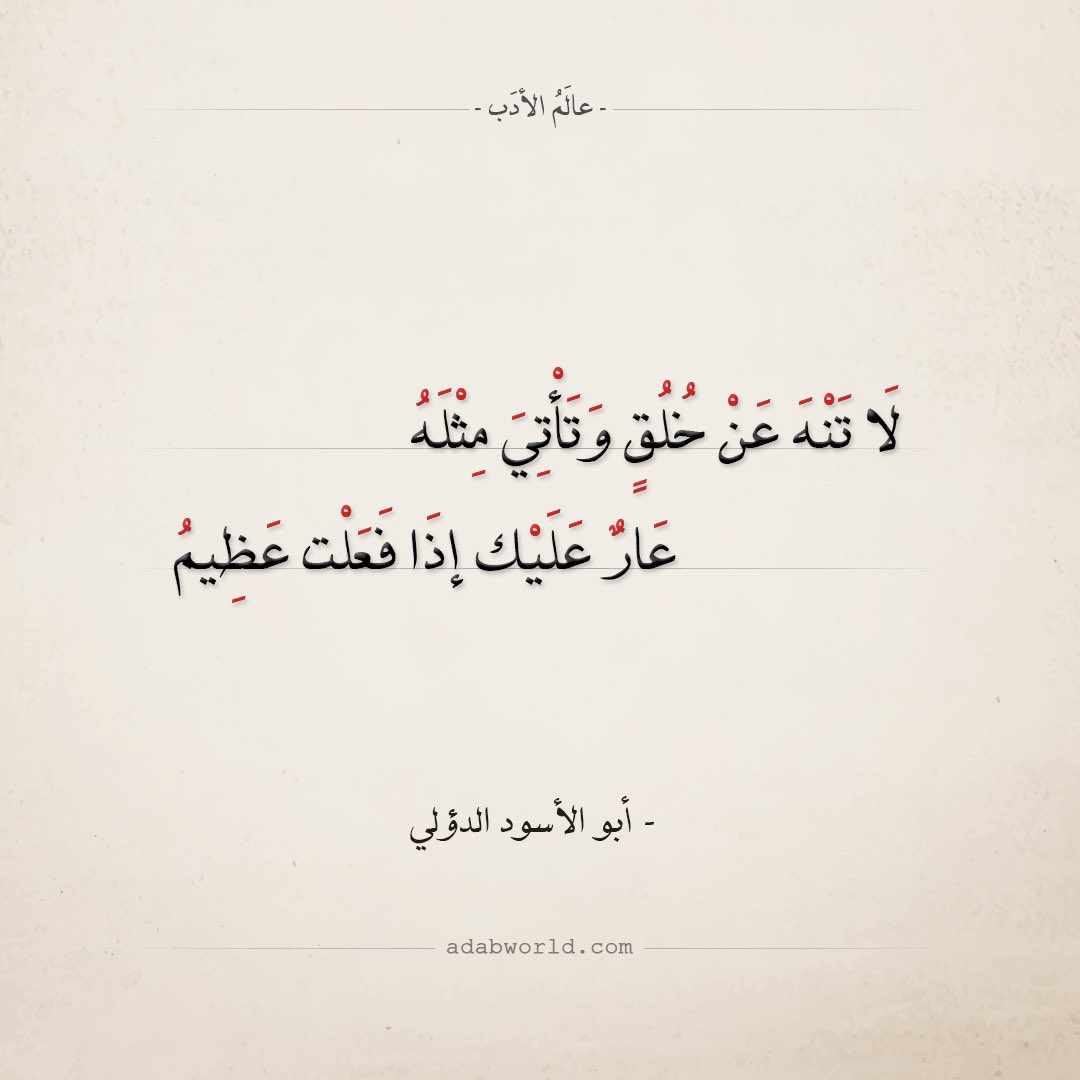 - عالَمُ الأدَب -
لَا تَنْهَ عَنْ خُلُقٍ وَتَأْتِيَ مِثْلَهُ
عَارٌ عَلَيْك إذَا فَعَلْت عَظِيمُ
- أبو الأسود الدؤلي
adabworld.com